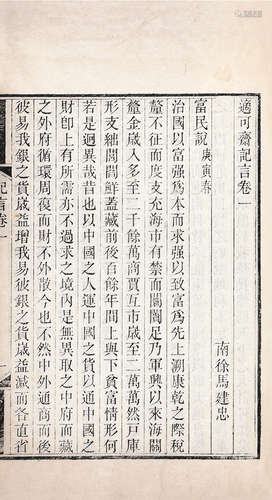 適可齋記言卷一
南徐馬建忠
富民說 庚寅春
治國以富強爲本而求強以致富爲先上溯康乾之際稅
釐不征而度支充海市有禁而闤闠足乃軍興以來海關
釐金歲入多至二千餘萬商賈互市歲至二萬萬然戶庫
形支絀閭閻鮮蓋藏前後百餘年間上與下貧富情形何
若是迥異哉昔也以中國之人運中國之貨以通中國之
財卽上有所需亦不過求之境內是無異取之中府而藏
之外府循環周復而財不外散今也不然中外通商而後
彼易我銀之貨歲益增我易彼銀之貨歲益減而各直省
記言卷一